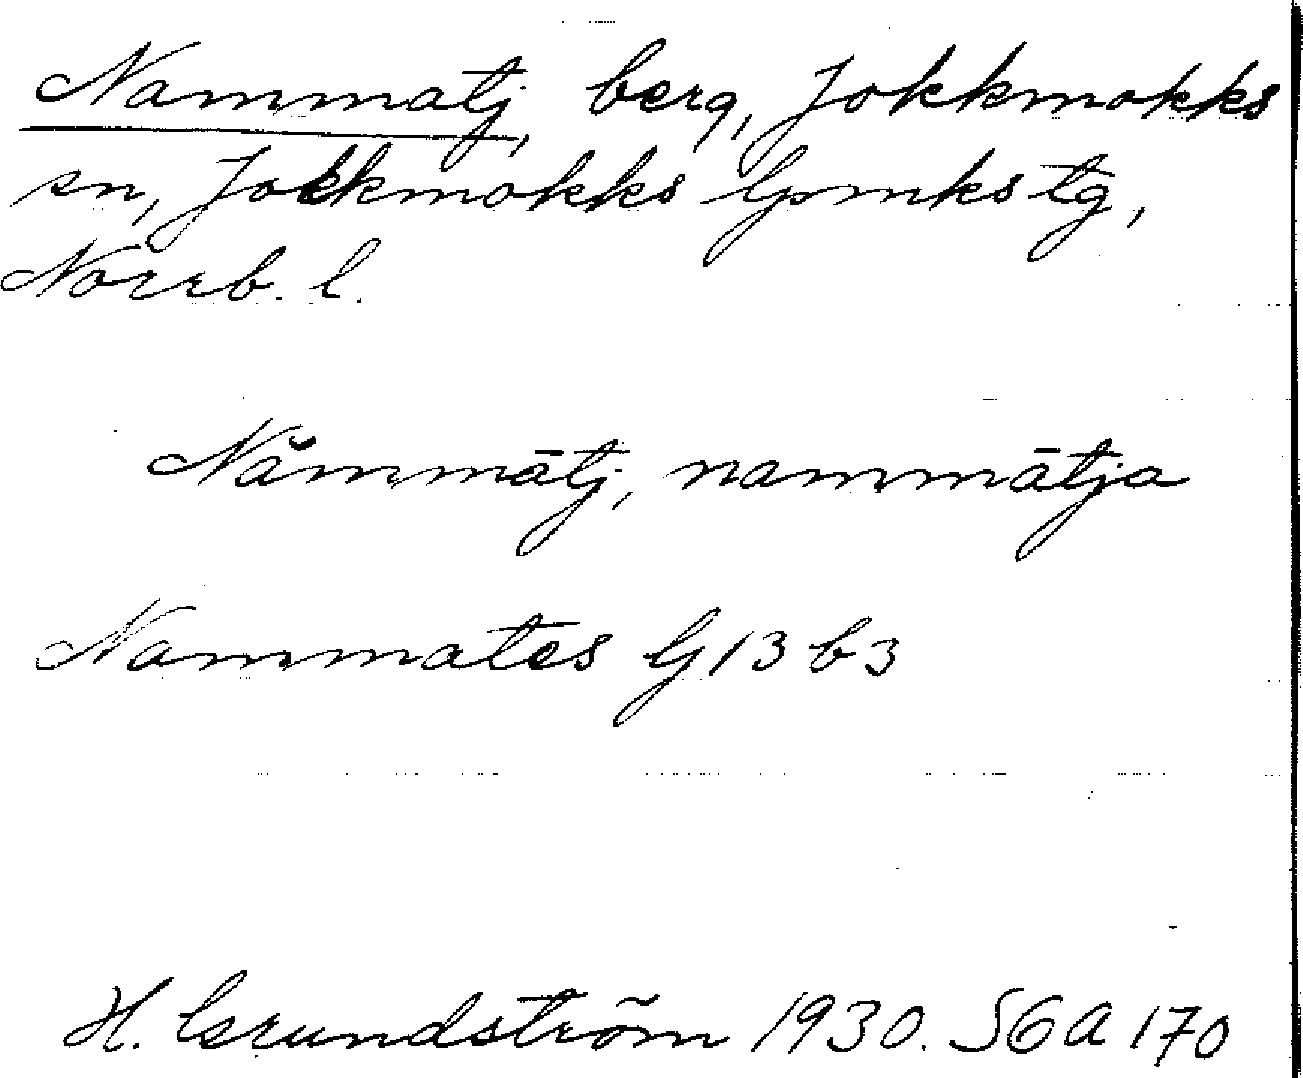 Nammatj, berg, Jokkmokks
sn, Jokkmokks lpmkstg,
Norrb. l.
Nămmātj, nammātja
Nammates G 13 b 3
H. Grundström 1930. SGA 170